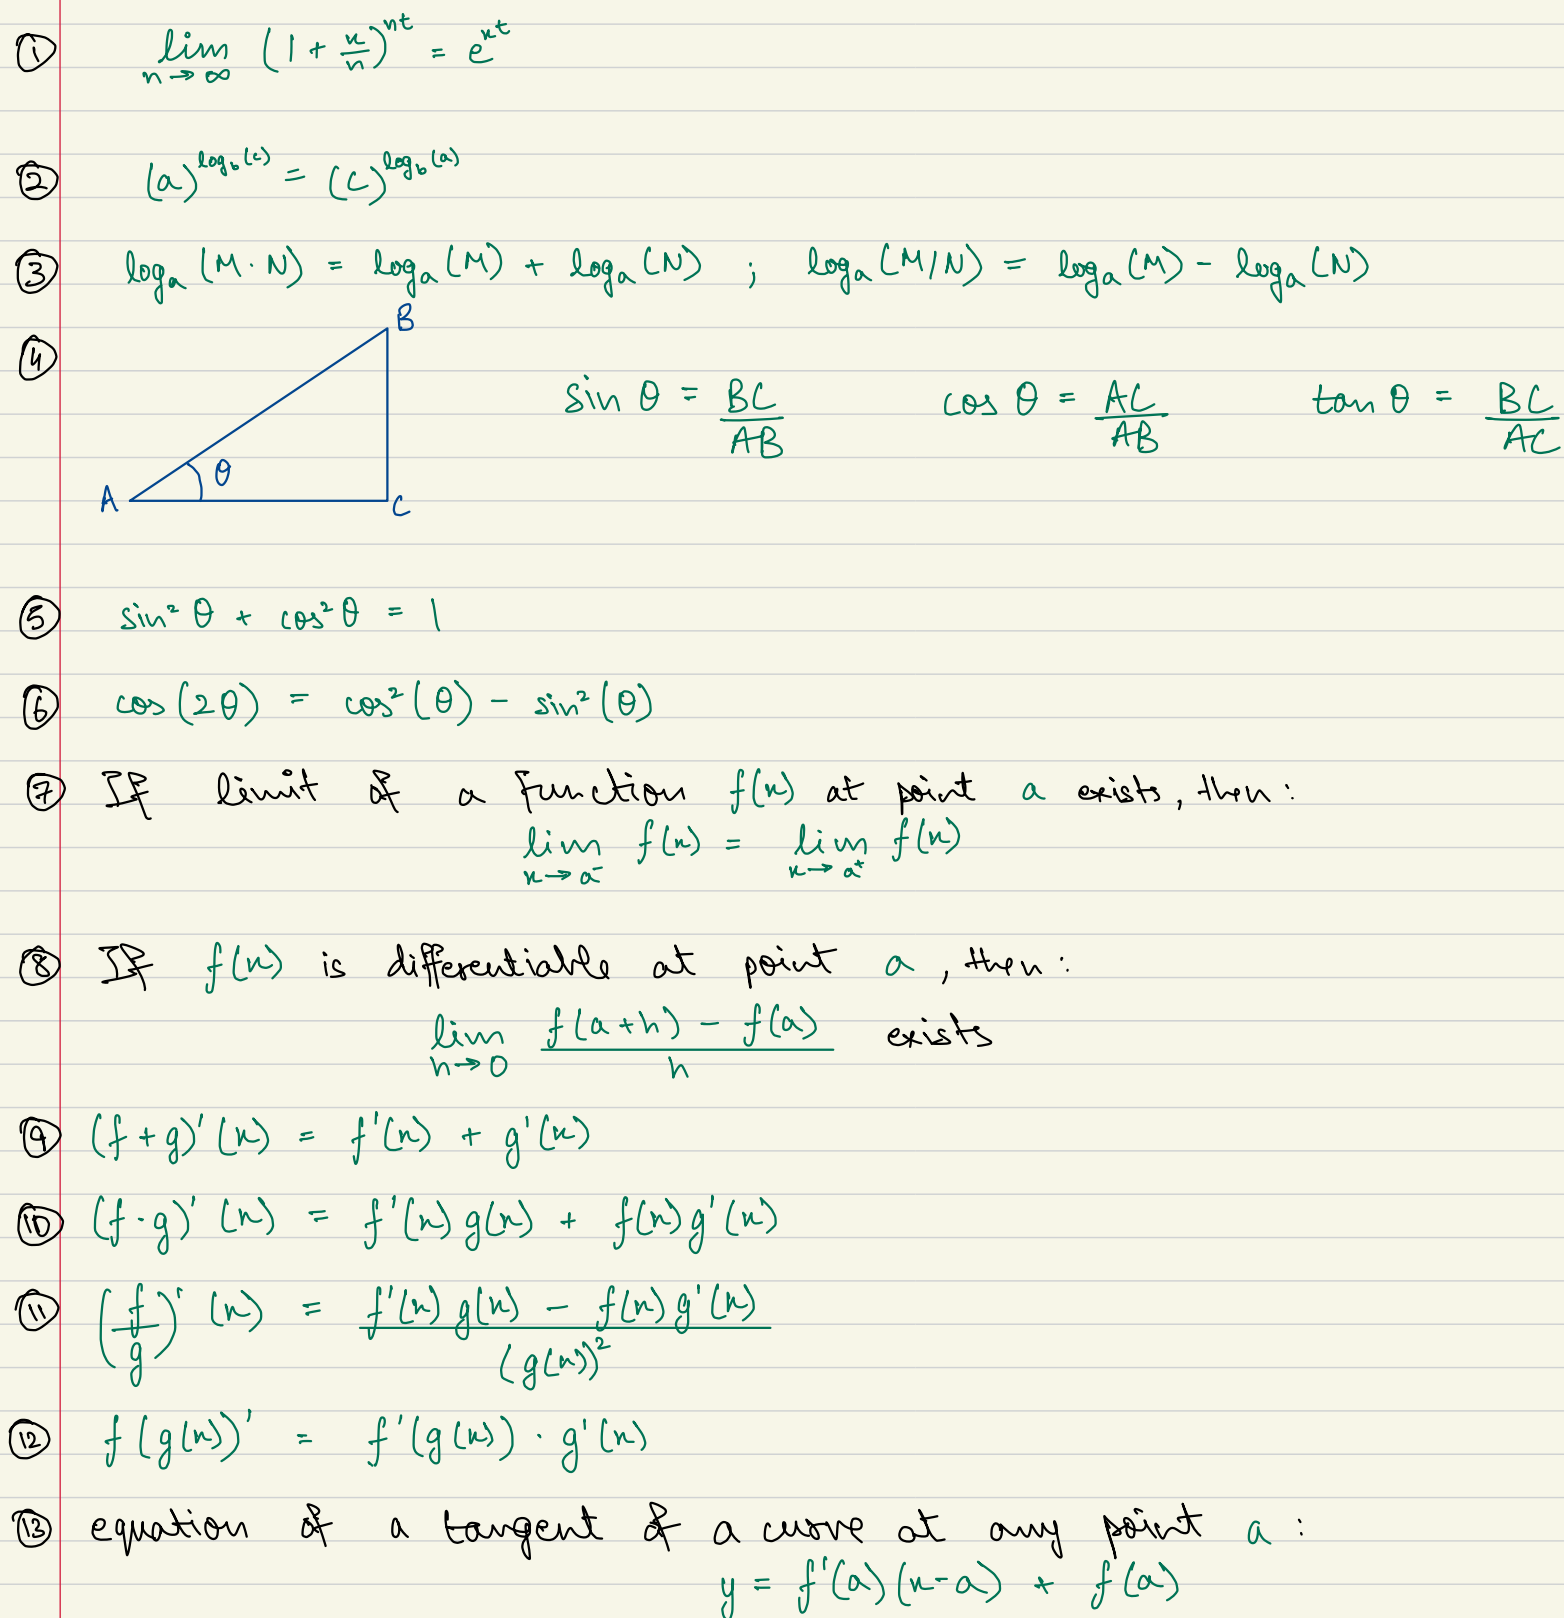 ① lim n→∞ (1 + x/n)^nt = e^xt
② (a)^log_b(c) = (c)^log_b(a)
③ log_a (M·N) = log_a (M) + log_a (N) ; log_a (M/N) = log_a (M) - log_a (N)
④
B
sin θ = BC/AB cos θ = AC/AB tan θ = BC/AC
θ
A C
⑤ sin² θ + cos² θ = 1
⑥ cos (2θ) = cos² (θ) - sin² (θ)
⑦ If limit of a function f(x) at point a exists, then :
lim x→a⁻ f(x) = lim x→a⁺ f(x)
⑧ If f(x) is differentiable at point a , then :
lim h→0 (f(a+h) - f(a))/h exists
⑨ (f + g)' (x) = f'(x) + g'(x)
⑩ (f · g)' (x) = f'(x) g(x) + f(x) g'(x)
⑪ (f/g)' (x) = (f'(x) g(x) - f(x) g'(x))/(g(x))²
⑫ f (g(x))' = f'(g(x)) · g'(x)
⑬ equation of a tangent of a curve at any point a :
y = f'(a) (x-a) + f(a)